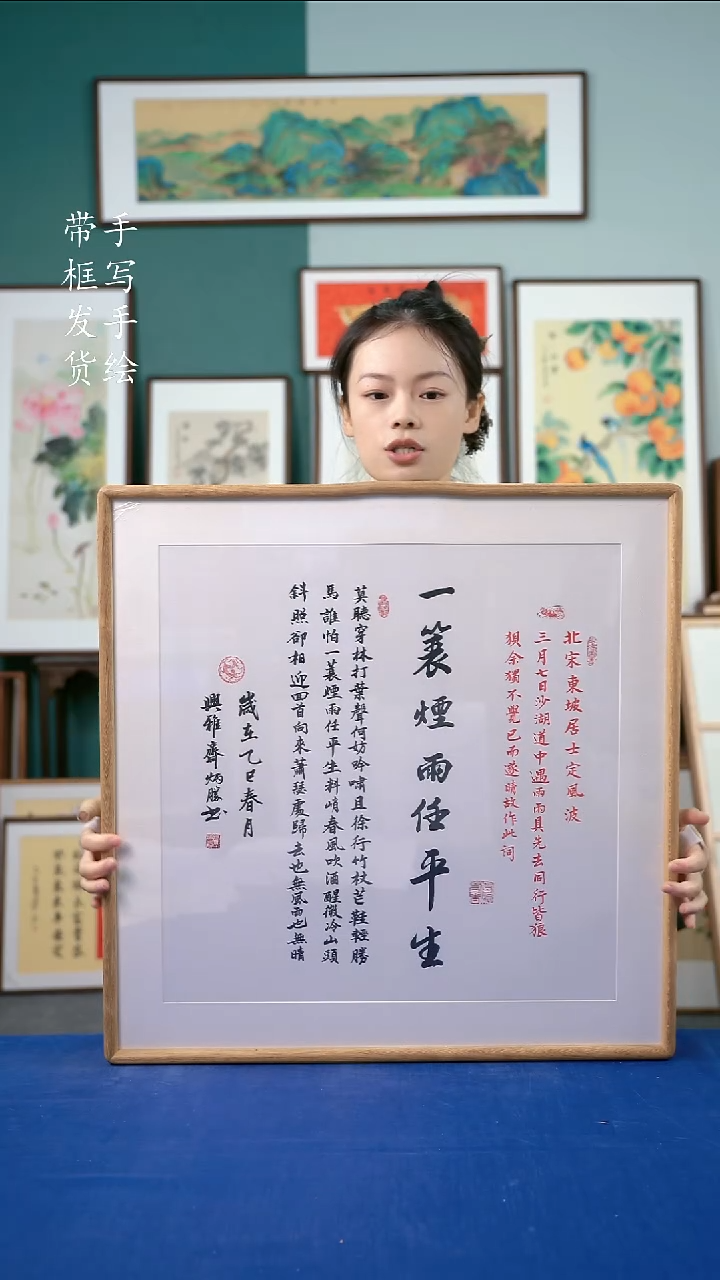 手写手绘
带框发货
北宋東坡居士定風波
三月七日沙湖道中遇雨雨具先去同行皆狼
狽余獨不覺已而遂晴故作此詞
一蓑煙雨任平生
莫聽穿林打葉聲何妨吟嘯且徐行竹杖芒鞋輕勝
馬誰怕一蓑煙雨任平生料峭春風吹酒醒微冷山頭
斜照卻相迎回首向來蕭瑟處歸去也無風雨也無晴
歲在乙巳春月
興雅齋炳勝书